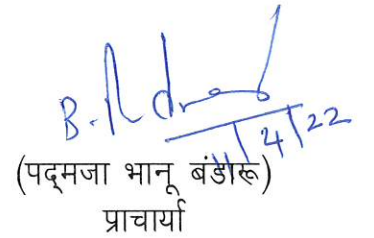 11/4/22
(पद्मजा भानू बंडारू)
प्राचार्या